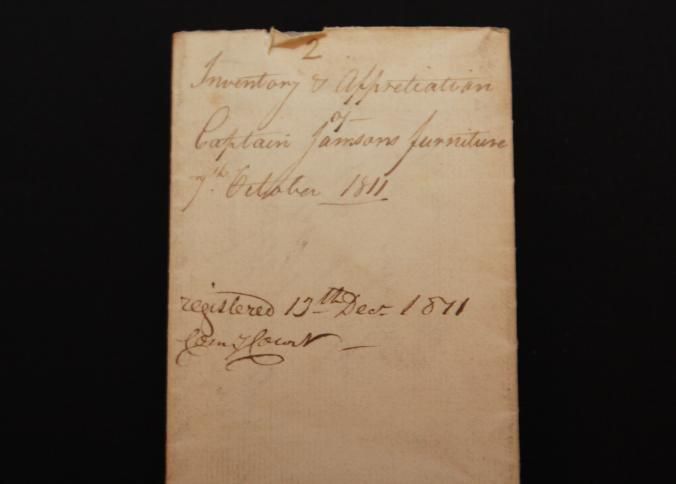 2
Inventory & Appretiation
of
Captain Jamsons furniture
7th. October 1811
registered 13th Decr. 1811
Comy Court